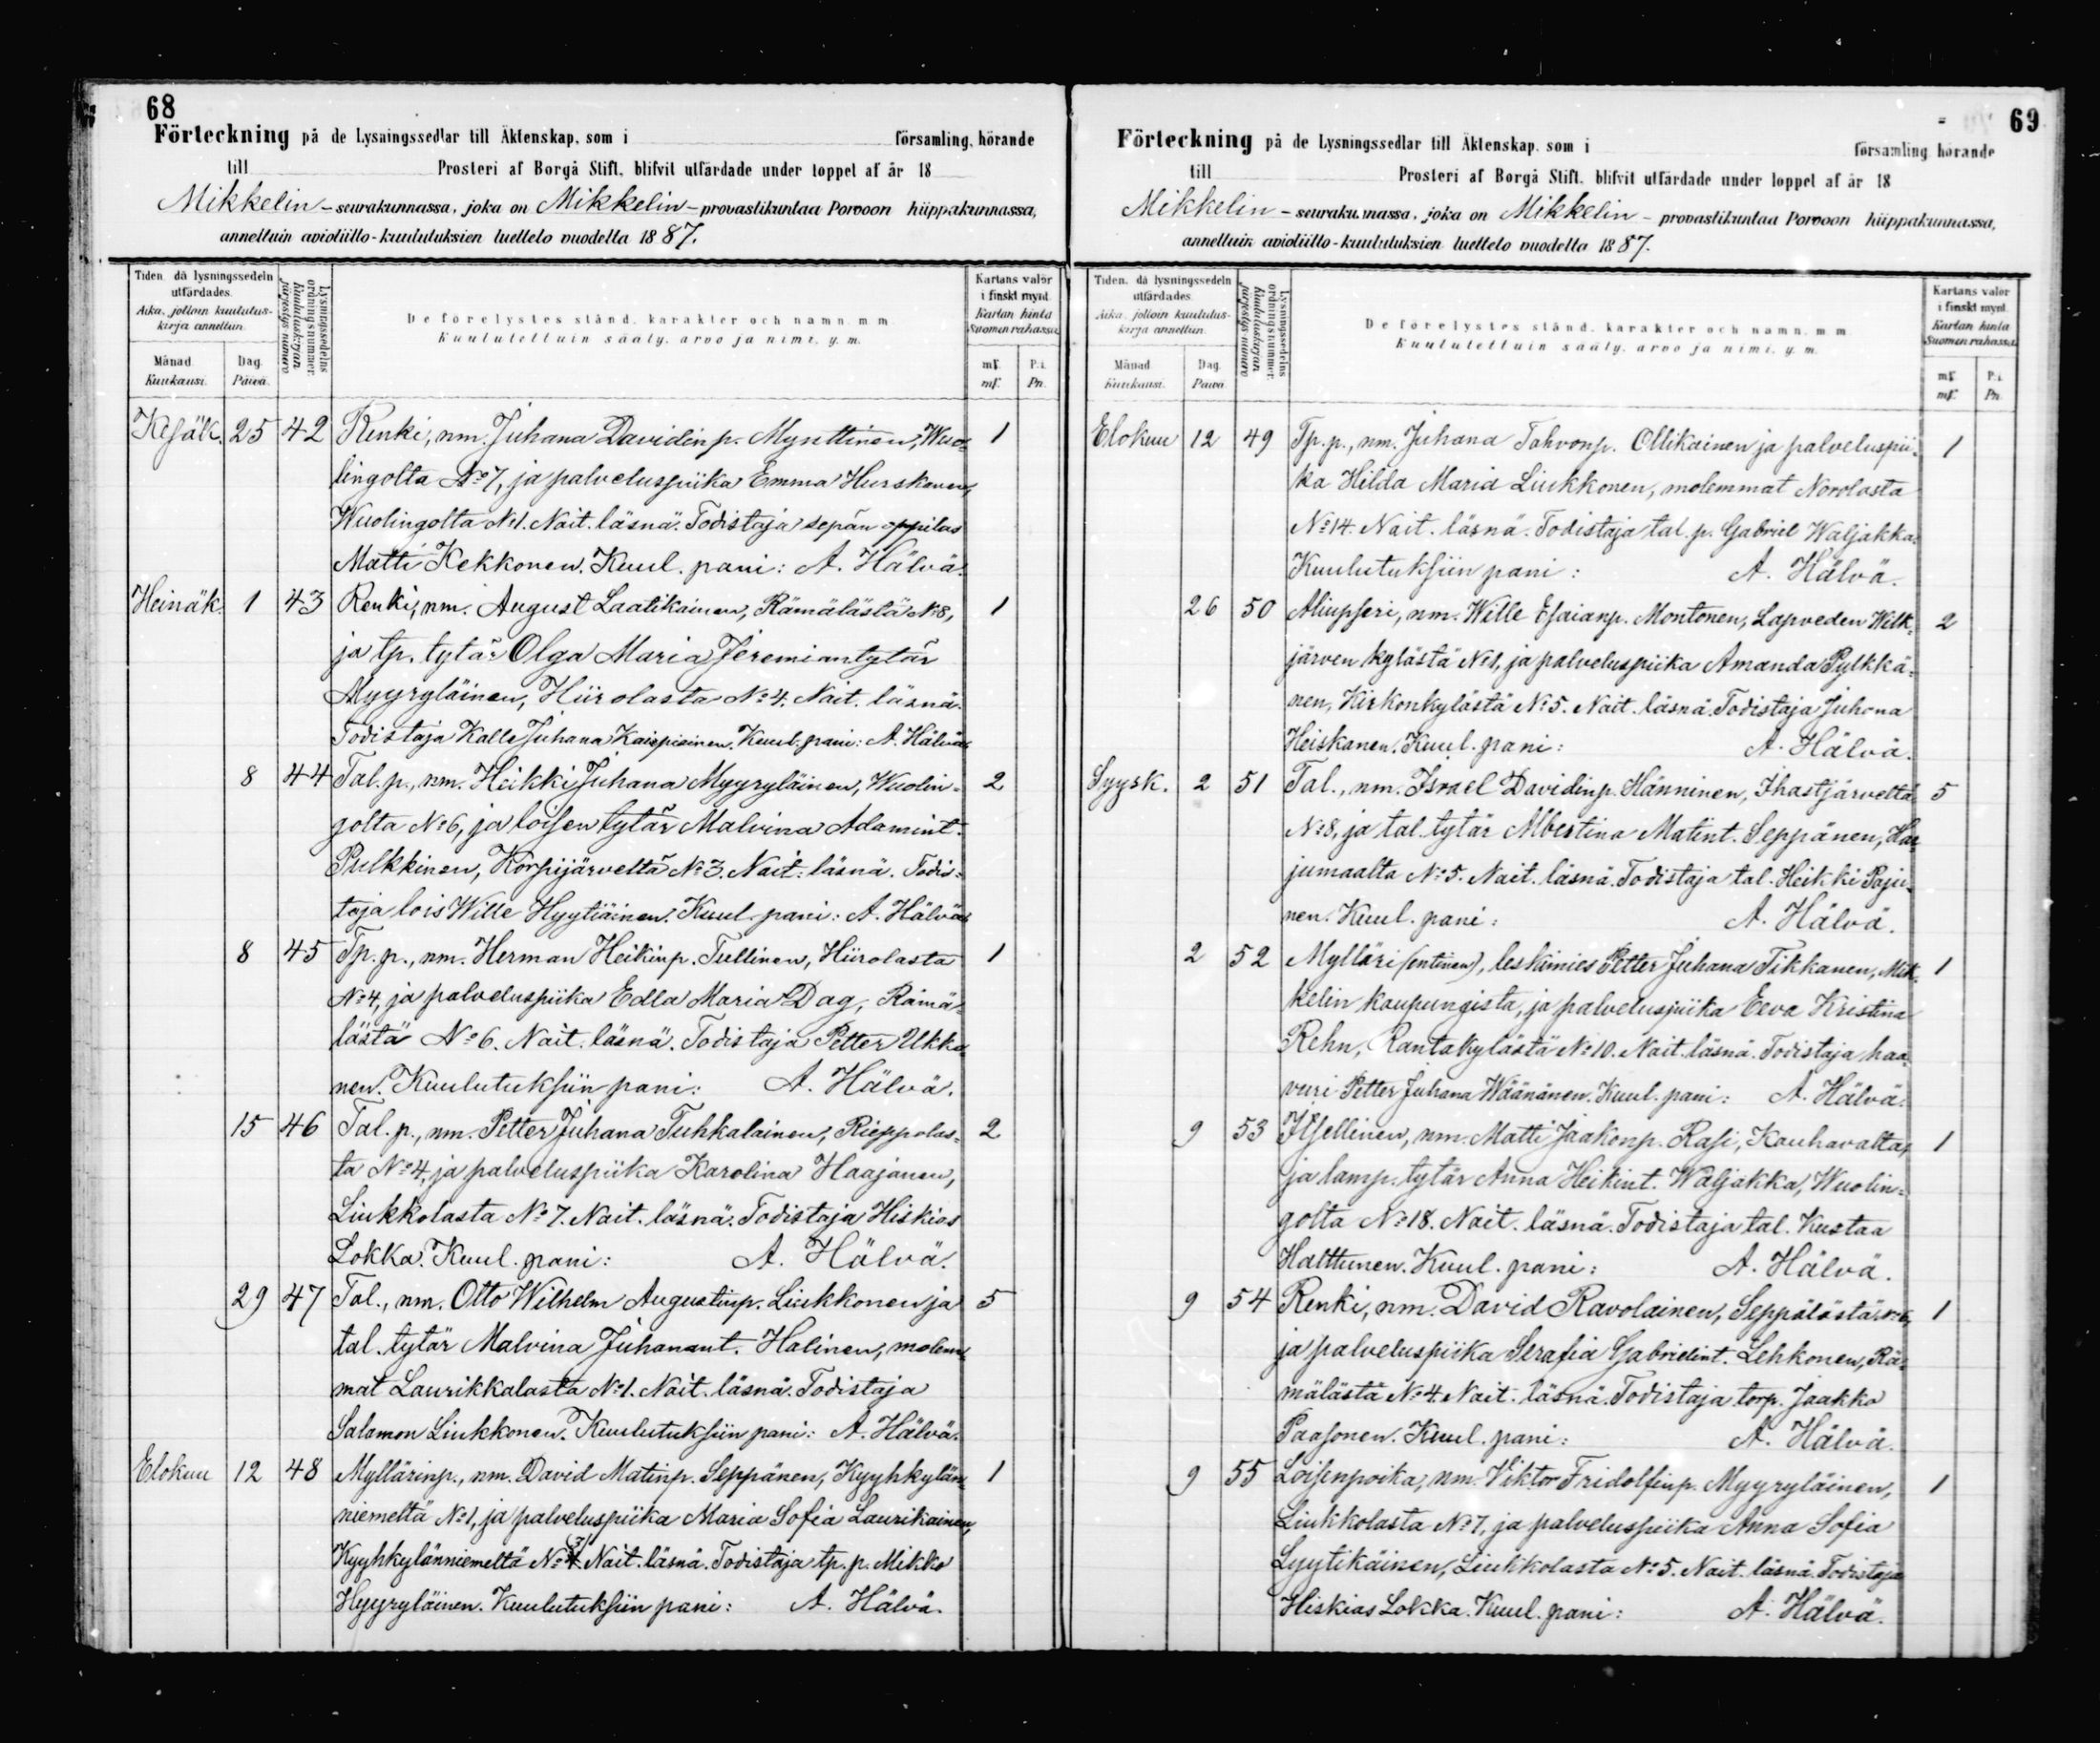 68
Förteckning på de Lysningssedlar till Äktenskap, som i församling, hörande
till Prosteri af Borgå Stift, blifvit utfärdade under loppet af år 18
Mikkelin - seurakunnassa, joka on Mikkelin - provastikuntaa Porvoon hiippakunnassa,
annettuin avioliitto-kuulutuksien luettelo vuodelta 1887.
Tiden, då lysningssedeln utfärdades.
Aika, jolloin kuulutus-kirja annettiin.
Månad
Kuukausi.
Dag.
Päivä.
Lysningssedelns ordningsnummer.
Kuulutuskirjan järjestys-numero
De förelystes stånd, karakter och namn m. m.
Kuulutettuin sääty, arvo ja nimi, y. m.
Kartans valör i finskt mynt.
Kartan hinta Suomen rahassa.
mk
mk.
P:i.
Pn.
Kesäk. 25 42 Renki, nm. Juhana Davidinp. Mynttinen, Wuo- 1
lingolta No 7, ja palveluspiika Emma Hurskanen,
Wuolingolta No 1. Nait. läsnä. Todistaja sepän oppilas
Matti Kekkonen. Kuul. pani: A. Hälvä.
Heinäk. 1 43 Renki, nm. August Laatikainen, Rämälästä No 8, 1
ja tp. tytär Olga Maria Jeremiantytär
Myyryläinen, Hiirolasta No 4. Nait. läsnä.
Todistaja Kalle Juhana Kaispiainen. Kuul. pani: A. Hälvä
8 44 Tal. p., nm. Heikki Juhana Myyryläinen, Wuolin- 2
golta No 6, ja loisen tytär Malvina Adamint.
Pulkkinen, Korpijärveltä No 3. Nait. läsnä. Todis-
taja lois Wille Hyytiäinen. Kuul. pani: A. Hälvä
8 45 Tp. p., nm. Herman Heikinp. Tullinen, Hiirolasta 1
No 4, ja palveluspiika Edla Maria Dag, Rämä-
lästä No 6. Nait. läsnä. Todistaja Petter Ukko-
nen. Kuulutuksiin pani: A. Hälvä.
15 46 Tal. p., nm. Petter Juhana Tuhkalainen, Rieppolas- 2
ta No 4, ja palveluspiika Karolina Haajanen,
Liukkolasta No 7. Nait. läsnä. Todistaja Hiskias
Lokka. Kuul. pani: A. Hälvä.
29 47 Tal., nm. Otto Wilhelm Augustinp. Liukkonen ja 5
tal. tytär Malvina Juhanant. Halinen, molem-
mat Laurikkalasta No 1. Nait. läsnä. Todistaja
Salamon Liukkonen. Kuulutuksiin pani: A. Hälvä.
Elokuu 12 48 Myllärinp., nm. David Matinp. Seppänen, Kyyhkylän- 1
niemeltä No 1, ja palveluspiika Maria Sofia Laurikainen,
Kyyhkylänniemeltä No 3. Nait. läsnä. Todistaja tp. p. Mikko
Hyyryläinen. Kuulutuksiin pani: A. Hälvä.
69
Förteckning på de Lysningssedlar till Äktenskap, som i församling hörande
till Prosteri af Borgå Stift, blifvit utfärdade under loppet af år 18
Mikkelin - seurakunnassa, joka on Mikkelin - provastikuntaa Porvoon hiippakunnassa,
annettuin avioliitto-kuulutuksien luettelo vuodelta 1887.
Tiden, då lysningssedeln utfärdades.
Aika, jolloin kuulutus-kirja annettiin.
Månad
Kuukausi.
Dag.
Päivä.
Lysningssedelns ordningsnummer.
Kuulutuskirjan järjestys-numero
De förelystes stånd, karakter och namn m. m.
Kuulutettuin sääty, arvo ja nimi, y. m.
Kartans valör i finskt mynt.
Kartan hinta Suomen rahassa.
mk
mk.
P:i.
Pn.
Elokuu 12 49 Tp. p., nm. Juhana Tahvonp. Ollikainen ja palveluspii- 1
ka Hilda Maria Liukkonen, molemmat Norolasta
No 14. Nait. läsnä. Todistaja tal. p. Gabriel Waljakka.
Kuulutuksiin pani: A. Hälvä.
26 50 Aliupseri, nm. Wille Esaianp. Montonen, Lapveden Wilk- 2
järven kylästä No 1, ja palveluspiika Amanda Pylkkä-
nen, Kirkonkylästä No 5. Nait. läsnä. Todistaja Juhana
Heiskanen. Kuul. pani: A. Hälvä.
Syysk. 2 51 Tal., nm. Israel Davidinp. Hänninen, Ihastjärveltä 5
No 8, ja tal. tytär Albertina Matint. Seppänen, Har-
jumaalta No 5. Nait. läsnä. Todistaja tal. Heikki Paju-
nen. Kuul. pani: A. Hälvä.
2 52 Mylläri (entinen), leskimies Petter Juhana Tikkanen, Mik- 1
kelin kaupungista, ja palveluspiika Eeva Kristina
Rehn, Rantakylästä No 10. Nait. läsnä. Todistaja haa-
vuri Petter Juhana Wäänänen. Kuul. pani: A. Hälvä.
9 53 Itsellinen, nm. Matti Jaakonp. Rasi, Kauhavalta, 1
ja lamp. tytär Anna Heikint. Waljakka, Wuolin-
golta No 18. Nait. läsnä. Todistaja tal. Kustaa
Halttunen. Kuul. pani: A. Hälvä.
9 54 Renki, nm. David Ravolainen, Seppälästä No 6, 1
ja palveluspiika Serafia Gabrielint. Lehkonen, Rä-
mälästä No 4. Nait. läsnä. Todistaja torp. Jaakko
Paasonen. Kuul. pani: A. Hälvä.
9 55 Loisenpoika, nm. Viktor Fridolfinp. Myyryläinen, 1
Liukkolasta No 7, ja palveluspiika Anna Sofia
Lyytikäinen, Liukkolasta No 5. Nait. läsnä. Todistaja
Hiskias Lokka. Kuul. pani: A. Hälvä.